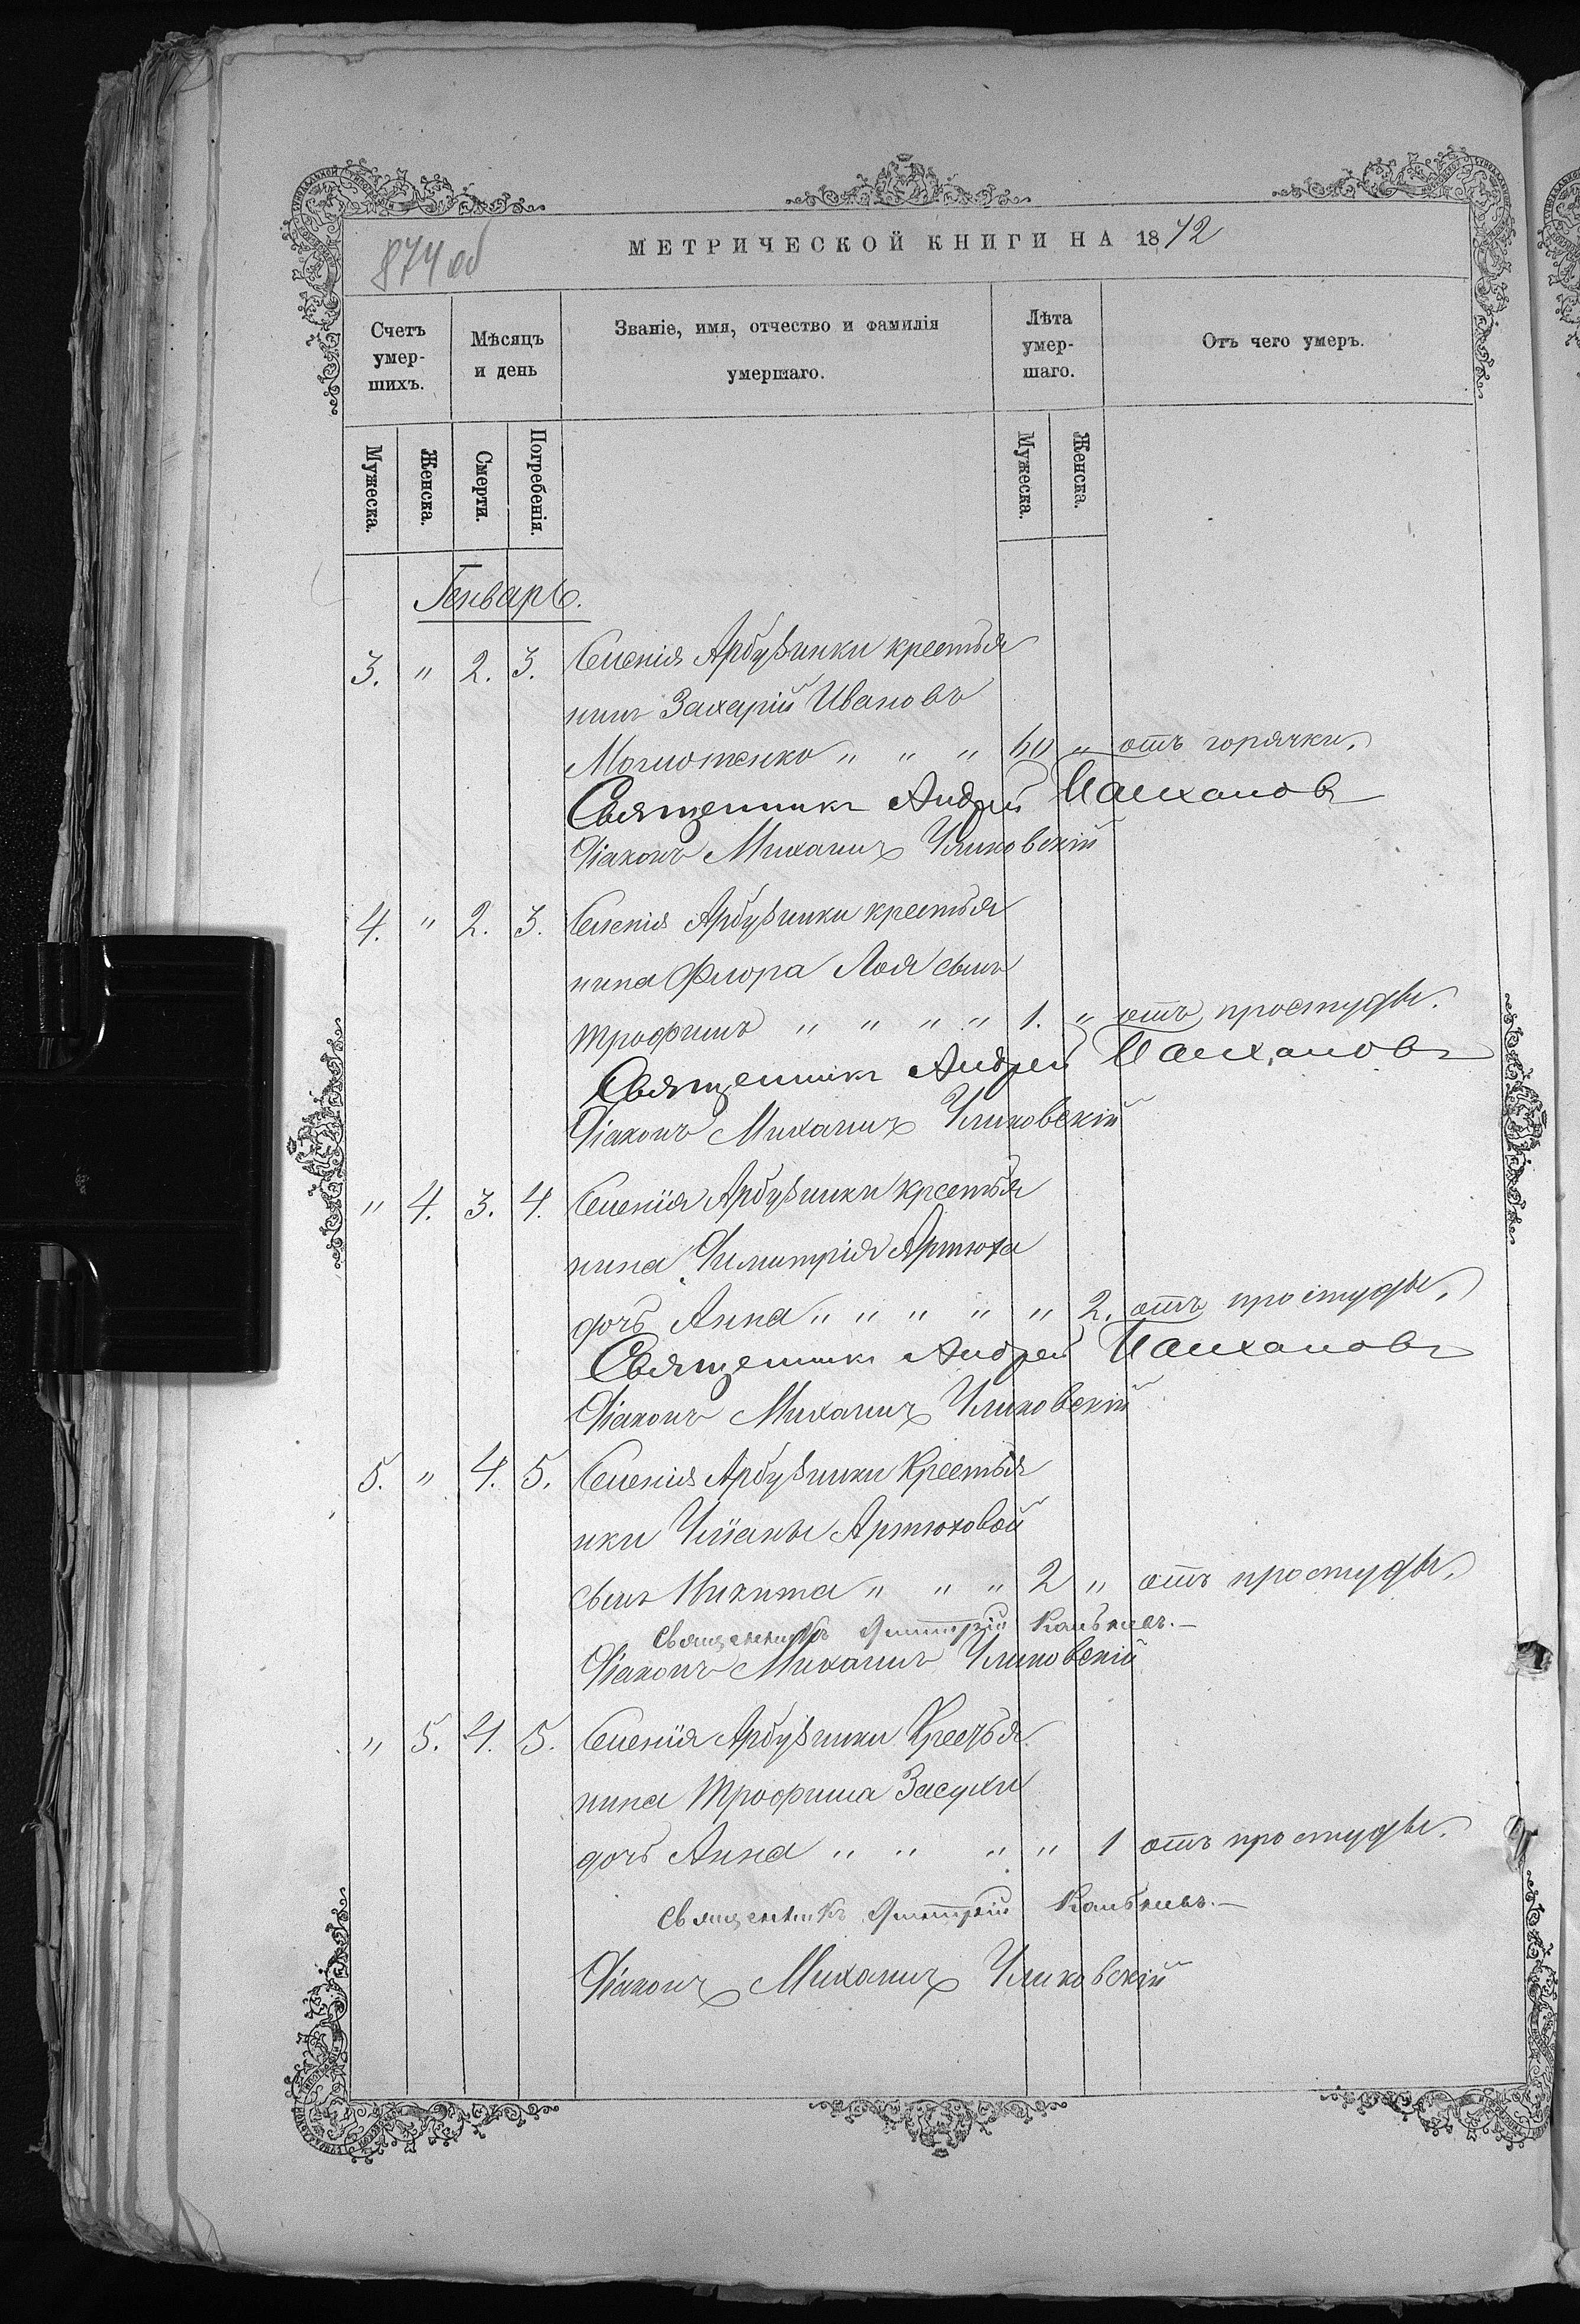 874 об
МЕТРИЧЕСКОЙ КНИГИ НА 1872
Счетъ умер-шихъ.
Мѣсяцъ и день
Званіе, имя, отчество и фамилія умершаго.
Лѣта умер-шаго.
Отъ чего умеръ.
Мужеска.
Женска.
Смерти.
Погребенія.
Мужеска.
Женска.
Генварь.
3. " 2. 3. Селенія Арбузинки крестья
нинъ Захарій Ивановъ
" " " 60 " отъ горячки.
Священникъ Андрей
Діаконъ Михаилъ
4. " 2. 3. Селенія Арбузинки крестья
нина Флора Лоя сынъ
Трофимъ " " " " 1. " отъ простуды.
Священникъ Андрей
Діаконъ Михаилъ
" 4. 3. 4. Селенія Арбузинки крестья
нина Димитрія Артюха
дочь Анна " " " " " 2. отъ простуды.
Священникъ Андрей
Діаконъ Михаилъ
5. " 4. 5. Селенія Арбузинки Крестья
нки Уліаны Артюховой
сынъ Никита " " " 2 " отъ простуды.
Священникъ Димитрій
Діаконъ Михаилъ
" 5. 4. 5. Селенія Арбузинки Крестья
нина Трофима Засухи
дочь Анна " " " " 1 отъ простуды.
Священникъ Димитрій
Діаконъ Михаилъ